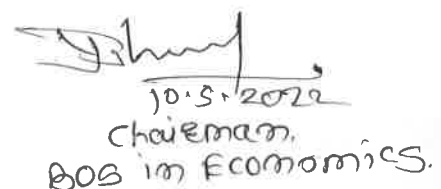 10.5.2022
Chairman.
BOS in Economics.